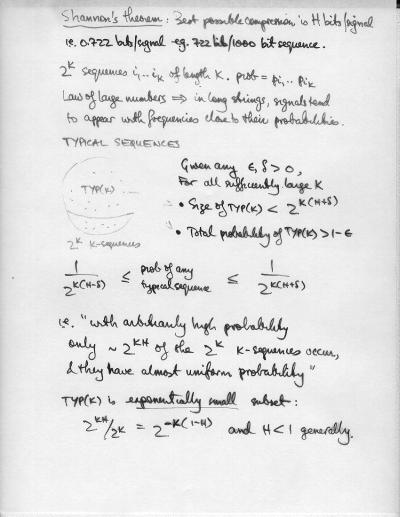 Shannon's theorem: Best possible compression is H bits/signal
i.e. 0.722 bits/signal eg. 722 bits/1000 bit sequence.
2^K sequences i₁...i_K of length K. prob = p_i₁...p_i_K
Law of large numbers ⟹ in long strings, signals tend
to appear with frequencies close to their probabilities.
TYPICAL SEQUENCES
TYP(K)
2^K K-sequences
Given any ε, δ > 0,
For all sufficiently large K
• Size of TYP(K) < 2^{K(H+δ)}
• Total probability of TYP(K) > 1-ε
1/2^{K(H-δ)} ≤ prob of any typical sequence ≤ 1/2^{K(H+δ)}
i.e. "with arbitrarily high probability
only ~ 2^{KH} of the 2^K K-sequences occur,
& they have almost uniform probability"
TYP(K) is exponentially small subset:
2^{KH}/2^K = 2^{-K(1-H)} and H<1 generally.